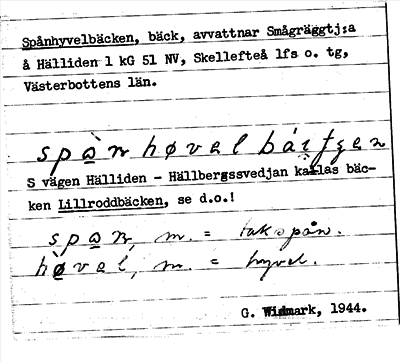 Spånhyvelbäcken, bäck, avvattnar Smågräggtj:a
å Hälliden 1 kG 51 NV, Skellefteå lfs o. tg,
Västerbottens län.
S vägen Hälliden - Hällbergssvedjan kallas bäc-
ken Lillroddbäcken, se d.o.!
m. = takspån.
høvel, m. = hyvel.
G. Widmark, 1944.